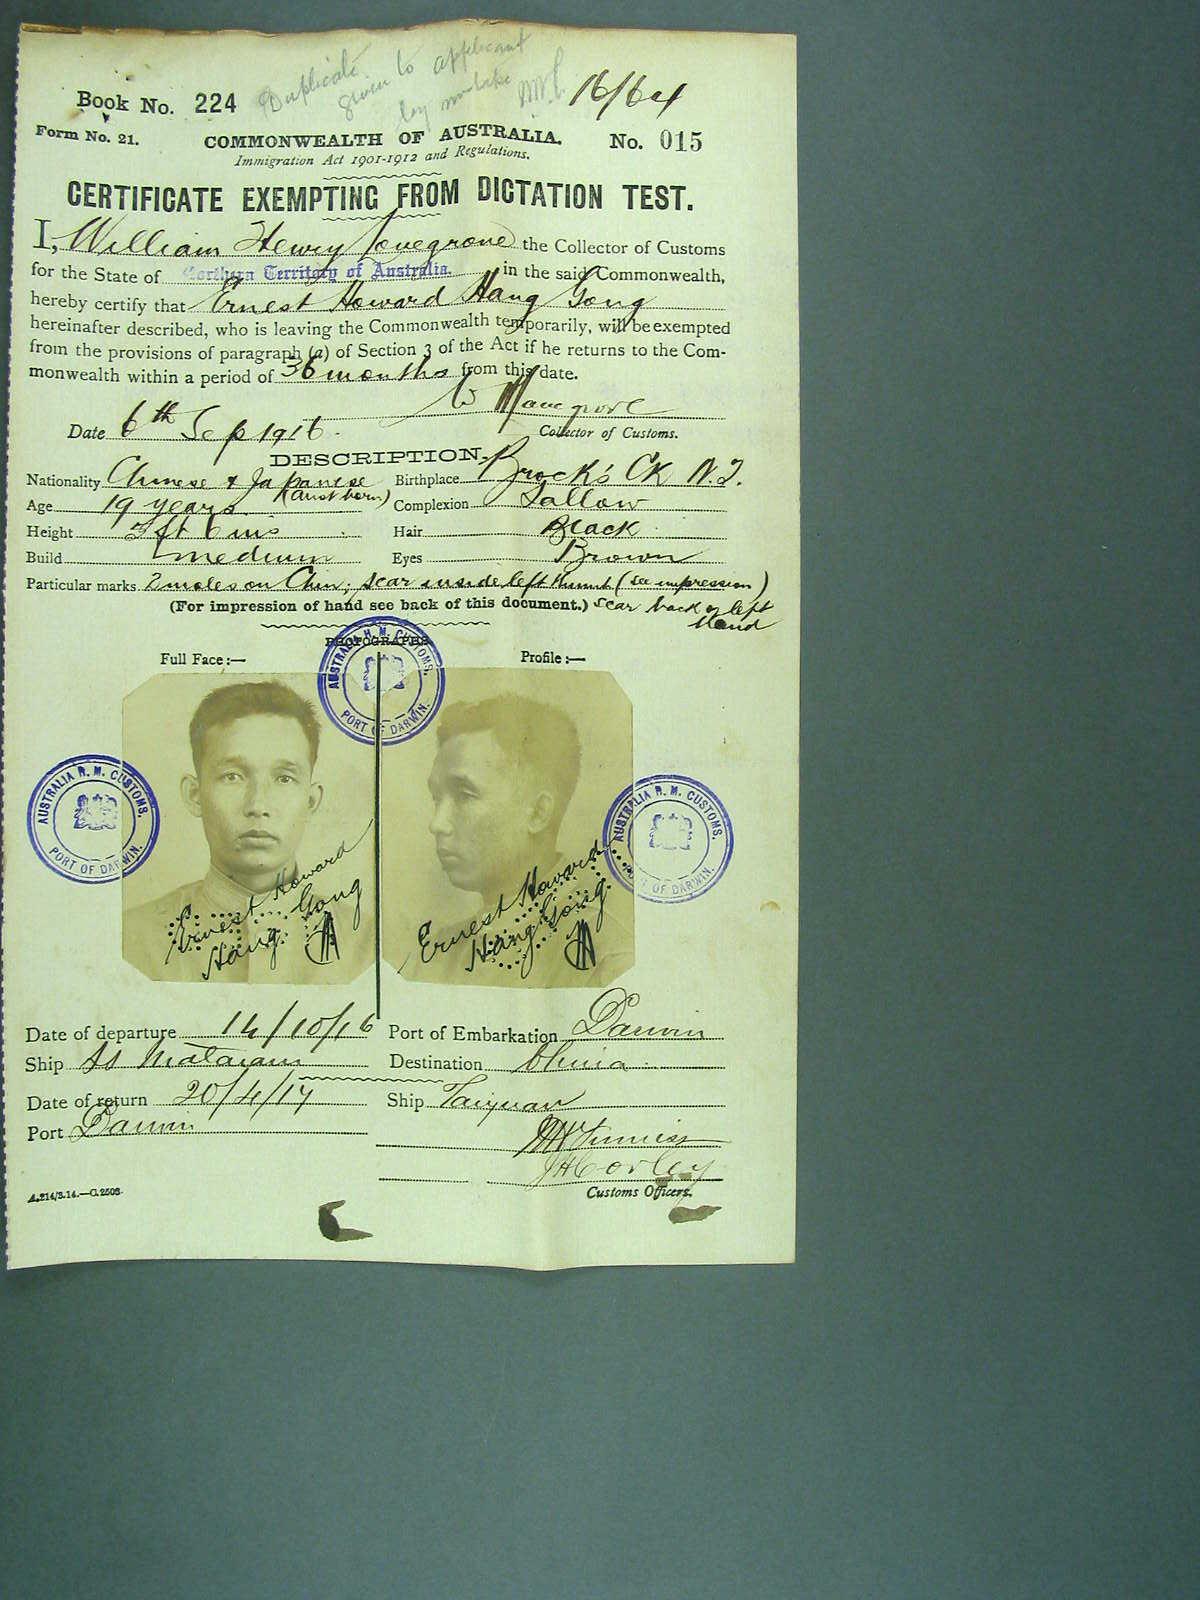 Duplicate given to applicant
by mistake
16/64
Book No. 224
Form No. 21.
COMMONWEALTH OF AUSTRALIA.
No. 015
Immigration Act 1901-1912 and Regulations.
CERTIFICATE EXEMPTING FROM DICTATION TEST.
I, William Henry Lovegrove the Collector of Customs
for the State of Northern Territory of Australia. in the said Commonwealth,
hereby certify that Ernest Howard Hang Gong
hereinafter described, who is leaving the Commonwealth temporarily, will be exempted
from the provisions of paragraph (a) of Section 3 of the Act if he returns to the Com-
monwealth within a period of 36 months from this date.
Date 6th Sep 1916.
Collector of Customs.
DESCRIPTION.
Nationality Chinese & Japanese (Aust born) Birthplace Brock's CK N.T.
Age 19 years Complexion Sallow
Height 5 ft 6 ins Hair Black
Build medium Eyes Brown
Particular marks 2 moles on Chin; scar inside left thumb (see impression)
(For impression of hand see back of this document.) scar back of left
Hand
PHOTOGRAPHS
Full Face:— Profile:—
AUSTRALIA H. M. CUSTOMS. PORT OF DARWIN.
AUSTRALIA H. M. CUSTOMS. PORT OF DARWIN.
AUSTRALIA H. M. CUSTOMS. PORT OF DARWIN.
Ernest Howard
Hang Gong
Ernest Howard
Hang Gong
Date of departure 14/10/16 Port of Embarkation Darwin
Ship SS Mataram Destination China
Date of return 20/4/17 Ship Taiyuan
Port Darwin
JHCorley
Customs Officers.
A.214/3.14.—C.2503